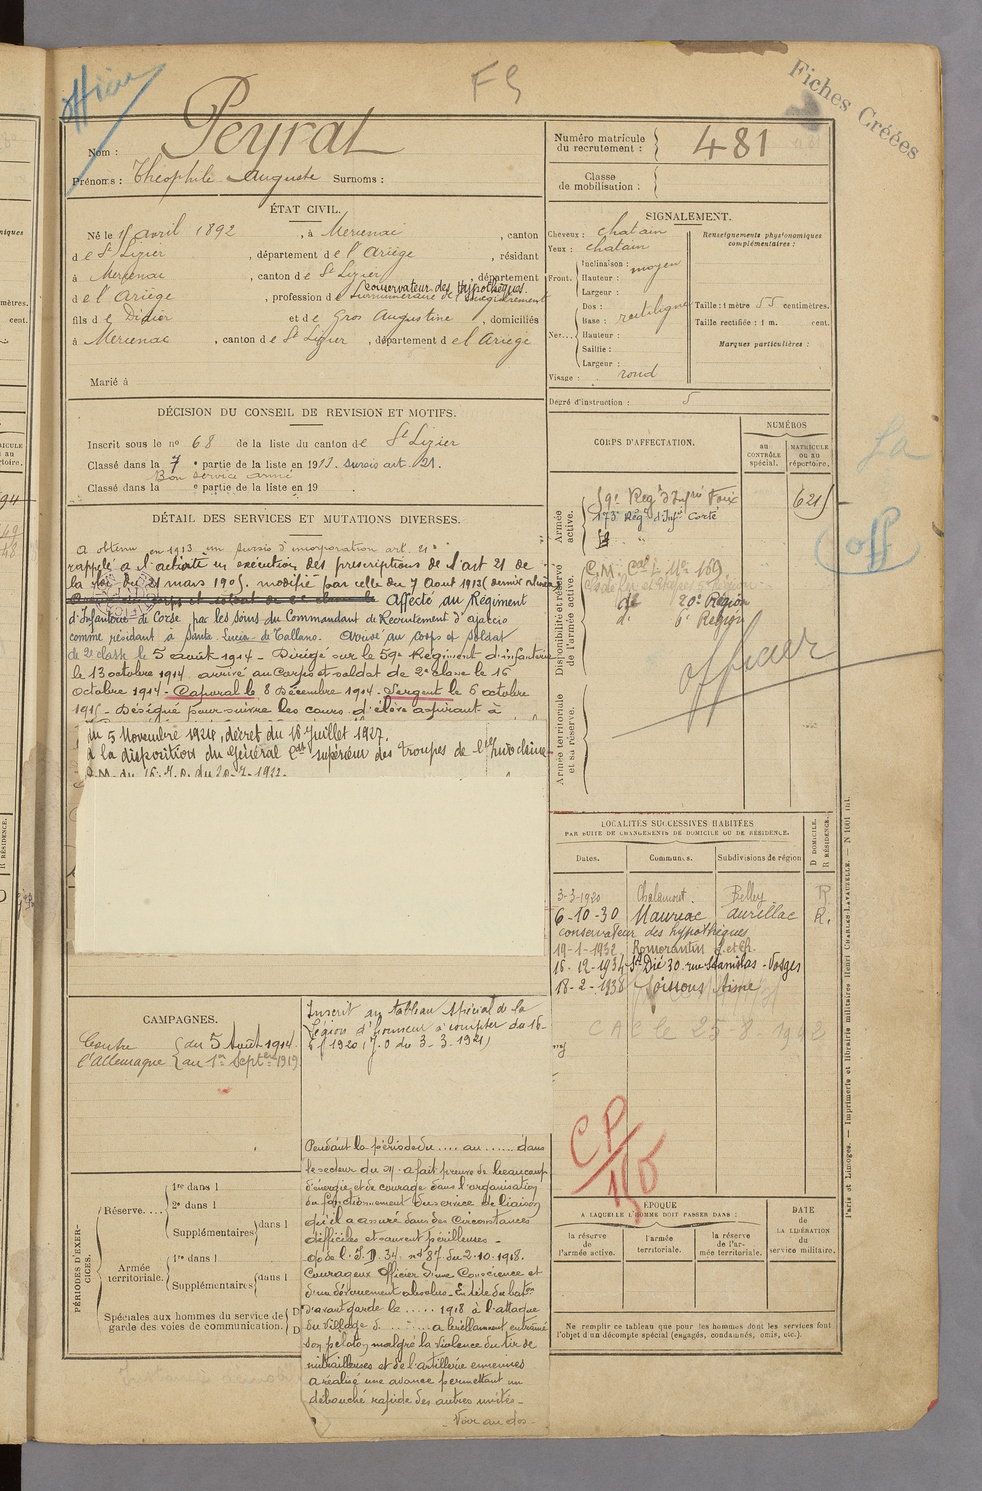 officier
F
Fiches Créées
Nom : Peyrat
Prénoms : Théophile Auguste Surnoms :
Numéro matricule du recrutement : 481
Classe de mobilisation :
ÉTAT CIVIL.
Né le avril 1892, à Mercenac, canton
de St Lizier, département de l'Ariège, résidant
à Mercenac, canton de St Lizier, département
conservateur des Hypothèques
de l'Ariège, profession de surnuméraire de l'enregistrement
fils de Didier et de Gros Augustine, domiciliés
à Mercenac, canton de St Lizier, département de l'Ariège
Marié à
SIGNALEMENT.
Cheveux : chatain
Yeux : chatain
Front. Inclinaison : moyen
Hauteur :
Largeur :
Nez... Dos : rectiligne
Base :
Hauteur :
Saillie :
Largeur :
Visage : rond
Renseignements physionomiques complémentaires :
Taille : 1 mètre 55 centimètres.
Taille rectifiée : 1 m. cent.
Marques particulières :
Degré d'instruction : 5
DÉCISION DU CONSEIL DE REVISION ET MOTIFS.
Inscrit sous le no 68 de la liste du canton de St Lizier
Classé dans la 7e partie de la liste en 1913. sursis art. 21.
Bon service armé
Classé dans la e partie de la liste en 19
DÉTAIL DES SERVICES ET MUTATIONS DIVERSES.
A obtenu en 1913 un sursis d'incorporation art. 21
rappelé à l'activité en exécution des prescriptions de l'art 21 de
la loi du 21 mars 1905 modifié par celle du 7 Aout 1913 (dernier
Affecté au Régiment
d'Infanterie de Corse par les soins du Commandant de Recrutement d'Ajaccio
comme résidant à Santa Lucia di Tallano. Arrivé au corps et soldat
de 2e classe le 5 août 1914 - Dirigé sur le 59e Régiment d'infanterie
le 13 octobre 1914 arrivé au Corps et soldat de 2e classe le 16
octobre 1914 - Caporal le 8 Décembre 1914 - Sergent le 6 octobre
1915 - Désigné pour suivre les cours d'élève aspirant à
du 5 Novembre 1926, décret du 18 Juillet 1927.
à la disposition du Général Ct supérieur des troupes de l'Indochine
CORPS D'AFFECTATION.
NUMÉROS
au CONTRÔLE spécial.
MATRICULE ou au répertoire.
Armée active.
59e Regt d'Infrie Foix 6215
173e Régt d'Infie Corté
Disponibilité et réserve de l'armée active.
20e Région
6e Région
officier
Armée territoriale et sa réserve.
LOCALITÉS SUCCESSIVES HABITÉES
PAR SUITE DE CHANGEMENTS DE DOMICILE OU DE RÉSIDENCE.
Dates. Communes. Subdivisions de région D DOMICILE. R RÉSIDENCE.
3-3-1920 Chalamont. Belley R
6-10-30 Mauriac Aurillac R.
conservateur des hypothèques
19-1-1932 Romorantin L. et Ch.
16-12-1934 St Dié 30 rue Stanislas - Vosges
18-2-1938 Soissons Aisne
CAC le 25-8 1942
CP
CAMPAGNES.
Contre du 5 Août 1914
l'Allemagne au 1er Septbre 1919
Inscrit au tableau spécial de la
Légion d'honneur à compter du 16-
1920 (J.O du 3-3-1921)
Pendant la période du .... au ...... dans
le secteur du M. a fait preuve de beaucoup
d'énergie et de courage dans l'organisation
du fonctionnement du service de liaison
qu'il a assuré dans des circonstances
difficiles et souvent périlleuses -
O. de l'I.D. 34 no 87 du 2.10.1918.
Courageux Officier d'une Conscience et
d'un dévouement absolus - En tête du baton
d'avant garde le ..... 1918 à l'attaque
du village d..... a brillamment entrainé
son peloton malgré la violence du tir de
mitrailleuses et de l'artillerie ennemies
a réalisé une avance permettant un
débouché rapide des autres unités -
- Voir au dos -
PÉRIODES D'EXERCICES.
Réserve.... 1re dans l
2e dans l
Supplémentaires dans l
Armée territoriale. 1re dans l
Supplémentaires dans l
Spéciales aux hommes du service de garde des voies de communication. D
D
ÉPOQUE
A LAQUELLE L'HOMME DOIT PASSER DANS :
la réserve de l'armée active.
l'armée territoriale.
la réserve de l'armée territoriale.
DATE de LA LIBÉRATION du service militaire.
Ne remplir ce tableau que pour les hommes dont les services font l'objet d'un décompte spécial (engagés, condamnés, omis, etc.).
Paris et Limoges. — Imprimerie et librairie militaires Henri CHARLES-LAVAUZELLE. — N 1001 int.